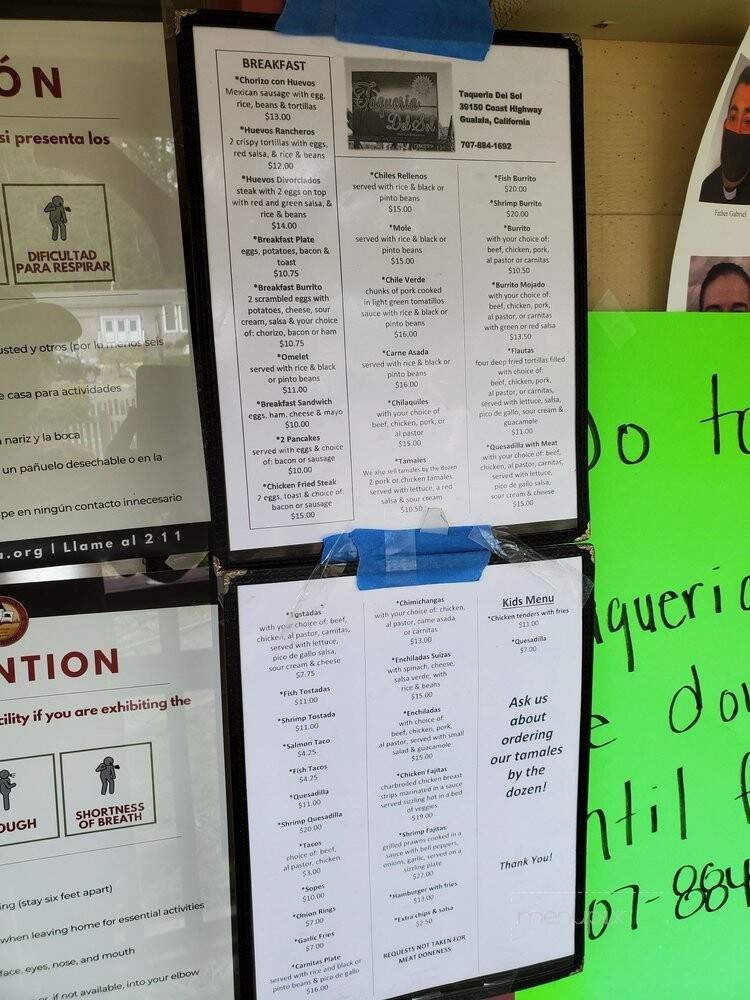 ÓN
si presenta los
DIFICULTAD
PARA RESPIRAR
usted y otros (por lo menos seis
casa para actividades
nariz y la boca
un pañuelo desechable o en la
en ningún contacto innecesario
.org | Llame al 211
NTION
if you are exhibiting the
SHORTNESS
OF BREATH
(stay six feet apart)
when leaving home for essential activities
eyes, nose, and mouth
if not available, into your elbow
BREAKFAST
*Chorizo con Huevos
Mexican sausage with egg,
rice, beans & tortillas
$13.00
*Huevos Rancheros
2 crispy tortillas with eggs,
red salsa, & rice & beans
$12.00
*Huevos Divorciados
steak with 2 eggs on top
with red and green salsa, &
rice & beans
$14.00
*Breakfast Plate
eggs, potatoes, bacon &
toast
$10.75
*Breakfast Burrito
2 scrambled eggs with
potatoes, cheese, sour
cream, salsa & your choice
of: chorizo, bacon or ham
$10.75
*Omelet
served with rice & black
or pinto beans
$11.00
*Breakfast Sandwich
eggs, ham, cheese & mayo
$10.00
*2 Pancakes
served with eggs & choice
of: bacon or sausage
$10.00
*Chicken Fried Steak
2 eggs, toast & choice of:
bacon or sausage
$15.00
Taqueria
Del Sol
Taqueria Del Sol
39150 Coast Highway
Gualala, California
707-884-1692
*Chiles Rellenos
served with rice & black or
pinto beans
$15.00
*Mole
served with rice & black or
pinto beans
$15.00
*Chile Verde
chunks of pork cooked
in light green tomatillos
sauce with rice & black or
pinto beans
$16.00
*Carne Asada
served with rice & black or
pinto beans
$16.00
*Chilaquiles
with your choice of
beef, chicken, pork, or
al pastor
$15.00
*Tamales
We also sell tamales by the dozen
2 pork or chicken tamales
served with lettuce, a red
salsa & sour cream
$10.50
*Fish Burrito
$20.00
*Shrimp Burrito
$20.00
*Burrito
with your choice of:
beef, chicken, pork,
al pastor or carnitas
$10.50
*Burrito Mojado
with your choice of:
beef, chicken, pork,
al pastor, or carnitas
with green or red salsa
$13.50
*Flautas
four deep fried tortillas filled
with choice of:
beef, chicken, pork,
al pastor, or carnitas,
served with lettuce, salsa,
pico de gallo, sour cream &
guacamole
$11.00
*Quesadilla with Meat
with your choice of: beef,
chicken, al pastor, carnitas,
served with lettuce,
pico de gallo salsa,
sour cream & cheese
$15.00
*Tostadas
with your choice of: beef,
chicken, al pastor, carnitas,
served with lettuce,
pico de gallo salsa,
sour cream & cheese
$7.75
*Fish Tostadas
$11.00
*Shrimp Tostada
$11.00
*Salmon Taco
$4.25
*Fish Tacos
$4.25
*Quesadilla
$11.00
*Shrimp Quesadilla
$20.00
*Tacos
choice of: beef,
al pastor, chicken
$3.00
*Sopes
$10.00
*Onion Rings
$7.00
*Garlic Fries
$7.00
*Carnitas Plate
served with rice and black or
pinto beans & pico de gallo
$16.00
*Chimichangas
with your choice of: chicken,
al pastor, carne asada
or carnitas
$13.00
*Enchiladas Suizas
with spinach, cheese,
salsa verde, with
rice & beans
$15.00
*Enchiladas
with choice of:
beef, chicken, pork,
al pastor, served with small
salad & guacamole
$15.00
*Chicken Fajitas
charbroiled chicken breast
strips marinated in a sauce
served sizzling hot in a bed
of veggies
$19.00
*Shrimp Fajitas
grilled prawns cooked in a
sauce with bell peppers,
onions, garlic, served on a
sizzling plate
$22.00
*Hamburger with fries
$13.00
*Extra chips & salsa
$2.50
REQUESTS NOT TAKEN FOR
MEAT DONENESS
Kids Menu
*Chicken tenders with fries
$11.00
*Quesadilla
$7.00
Ask us
about
ordering
our tamales
by the
dozen!
Thank You!
menupix
Father Gabriel
07-884